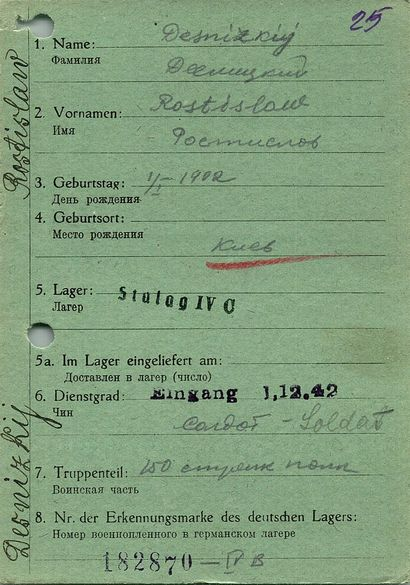 25
1. Name: Desnizkij
Фамилия Десницкий
2. Vornamen: Rostislaw
Имя Ростислов
3. Geburtstag: 1/I - 1902
День рождения
4. Geburtsort:
Место рождения Киев
5. Lager: Stalag IV C
Лагер
5a. Im Lager eingeliefert am:
Доставлен в лагер (число)
6. Dienstgrad: Eingang 1.12.42
Чин Солдат - Soldat
7. Truppenteil: 150 стрелк полк
Воинская часть
8. Nr. der Erkennungsmarke des deutschen Lagers:
Номер военнопленного в германском лагере
182870 - IV B
Desnizkij Rostislaw